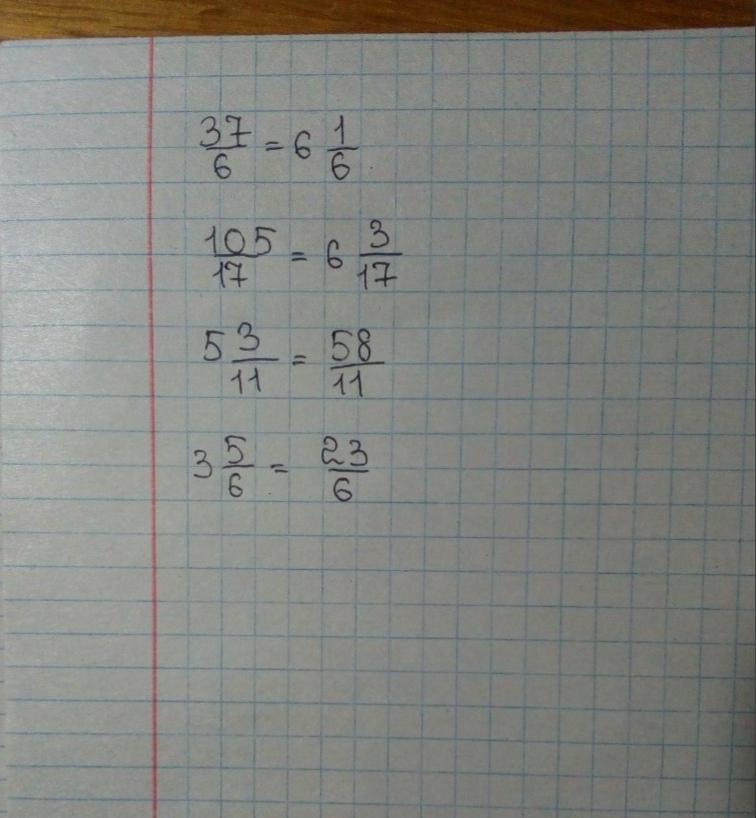 37/6 = 6 1/6
105/17 = 6 3/17
5 3/11 = 58/11
3 5/6 = 23/6